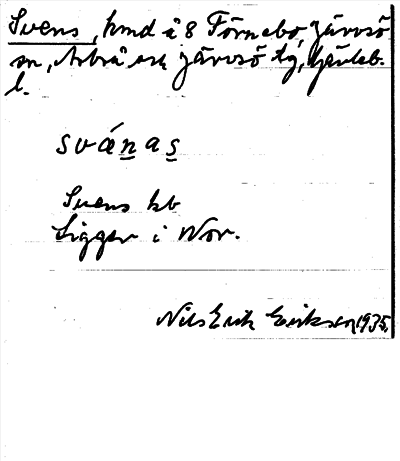 Svens, hmd å 8 Förnebo, Järvsö
sn, Arbrå o Järvsö tg, Gävleb.
l.
svánas
Svens hb
Ligger i Nor.
Nils Erik Eriksson 1935.